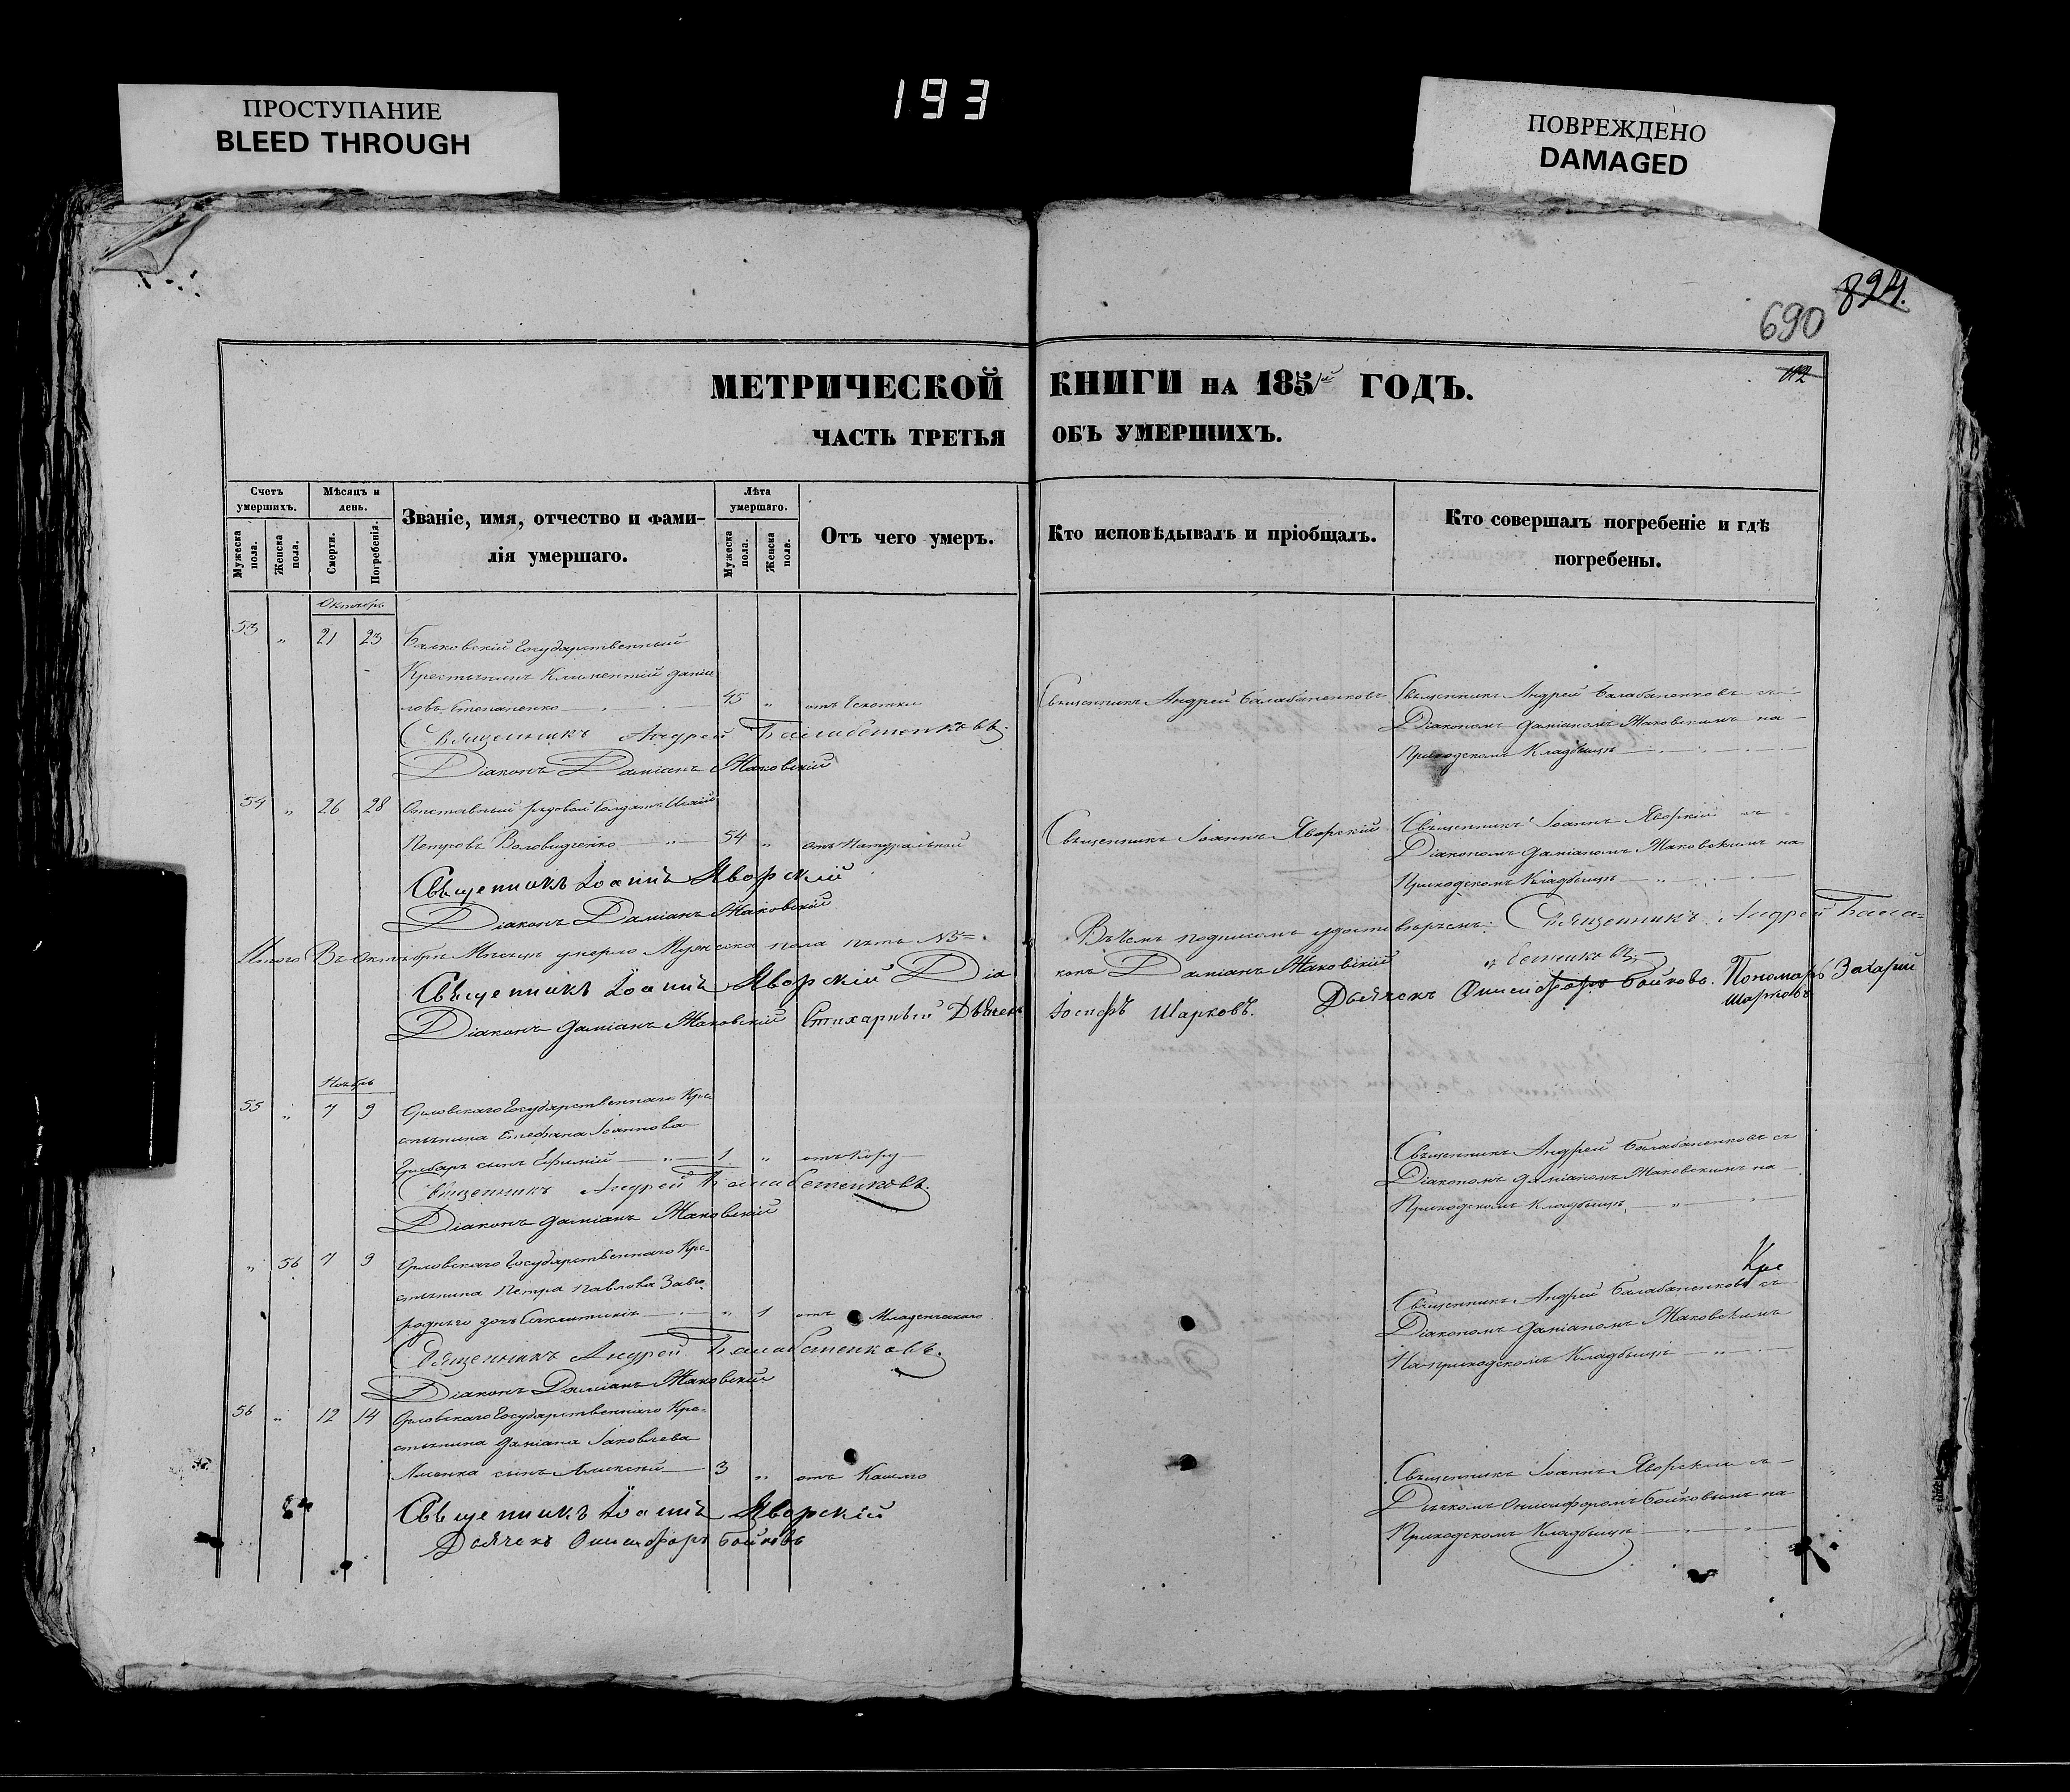 193
ПРОСТУПАНИЕ
BLEED THROUGH
ПОВРЕЖДЕНО
DAMAGED
824.
690
112
МЕТРИЧЕСКОЙ КНИГИ НА 1851й ГОДЪ.
ЧАСТЬ ТРЕТЬЯ ОБЪ УМЕРШИХЪ.
Счетъ умершихъ.
Мѣсяцъ и день.
Званіе, имя, отчество и фамилія умершаго.
Лѣта умершаго.
Отъ чего умеръ.
Кто исповѣдывалъ и пріобщалъ.
Кто совершалъ погребеніе и гдѣ погребены.
Мужеска пола.
Женска пола.
Смерти.
Погребенія.
Мужеска пола.
Женска пола.
Октябрь
53 " 21 23 Балковскій Государственный
Крестьянинъ Климентій Даніи
ловъ Степаненко 45 " отъ Чахотки Священникъ Андрей Балабаненковъ Священникъ Андрей Балабаненковъ съ
Діакономъ Даміаномъ Жаковскимъ на
Приходскомъ Кладбищѣ
Священникъ Андрей Балабаненковъ
Діаконъ Даміанъ Жаковскій
54 " 26 28 Отставный рядовой Солдатъ
Петровъ 54 " отъ Натуральной Священникъ Іоаннъ Яворскій Священникъ Іоаннъ Яворскій съ
Діакономъ Даміаномъ Жаковскимъ на
Приходскомъ Кладбищѣ
Священникъ Іоаннъ Яворскій
Діаконъ Даміанъ Жаковскій
Итого Въ Октябрѣ Мѣсяцѣ умерло Мужеска пола пять №5= Въ чемъ подписомъ удостовѣряемъ: Священникъ Андрей Бала=
бененковъ
Священникъ Іоаннъ Яворскій Діа
конъ Даміанъ Жаковскій Дьячекъ Онисифоръ Бойковъ. Пономарь Захарий
Шарковъ
Діаконъ Даміанъ Жаковскій Стихарный Дьячекъ Іосифъ Шарковъ.
Ноябрь
55 " 7 9 Орловскаго Государственнаго Кре
стьянина Стефана Іоаннова
сынъ Ефимій 1 " отъ Кору
Священникъ Андрей Балабаненковъ съ
Діакономъ Даміаномъ Жаковскимъ на
Приходскомъ Кладбищѣ
Священникъ Андрей Балабетенковъ.
Діаконъ Даміанъ Жаковскій
" 56 7 9 Орловскаго Государственнаго Кре-
стьянина Петра Павлова Заво
роднего дочь " 1 отъ Младенческаго
Кре
Священникъ Андрей Балабаненковъ съ
Діакономъ Даміаномъ Жаковскимъ
На приходскомъ Кладбищѣ
Священникъ Андрей Балабетенковъ.
Діаконъ Даміанъ Жаковскій
56 " 12 14 Орловскаго Государственнаго Кре=
стьянина Даміана Іаковлева
сынъ Алексѣй 3 " отъ Кашлю
Священникъ Іоаннъ Яворскій съ
Дьячкомъ Онисифоромъ Бойковымъ на
Приходскомъ Кладбищѣ
Священникъ Іоаннъ Яворскій
Дьячекъ Онисифоръ Бойковъ